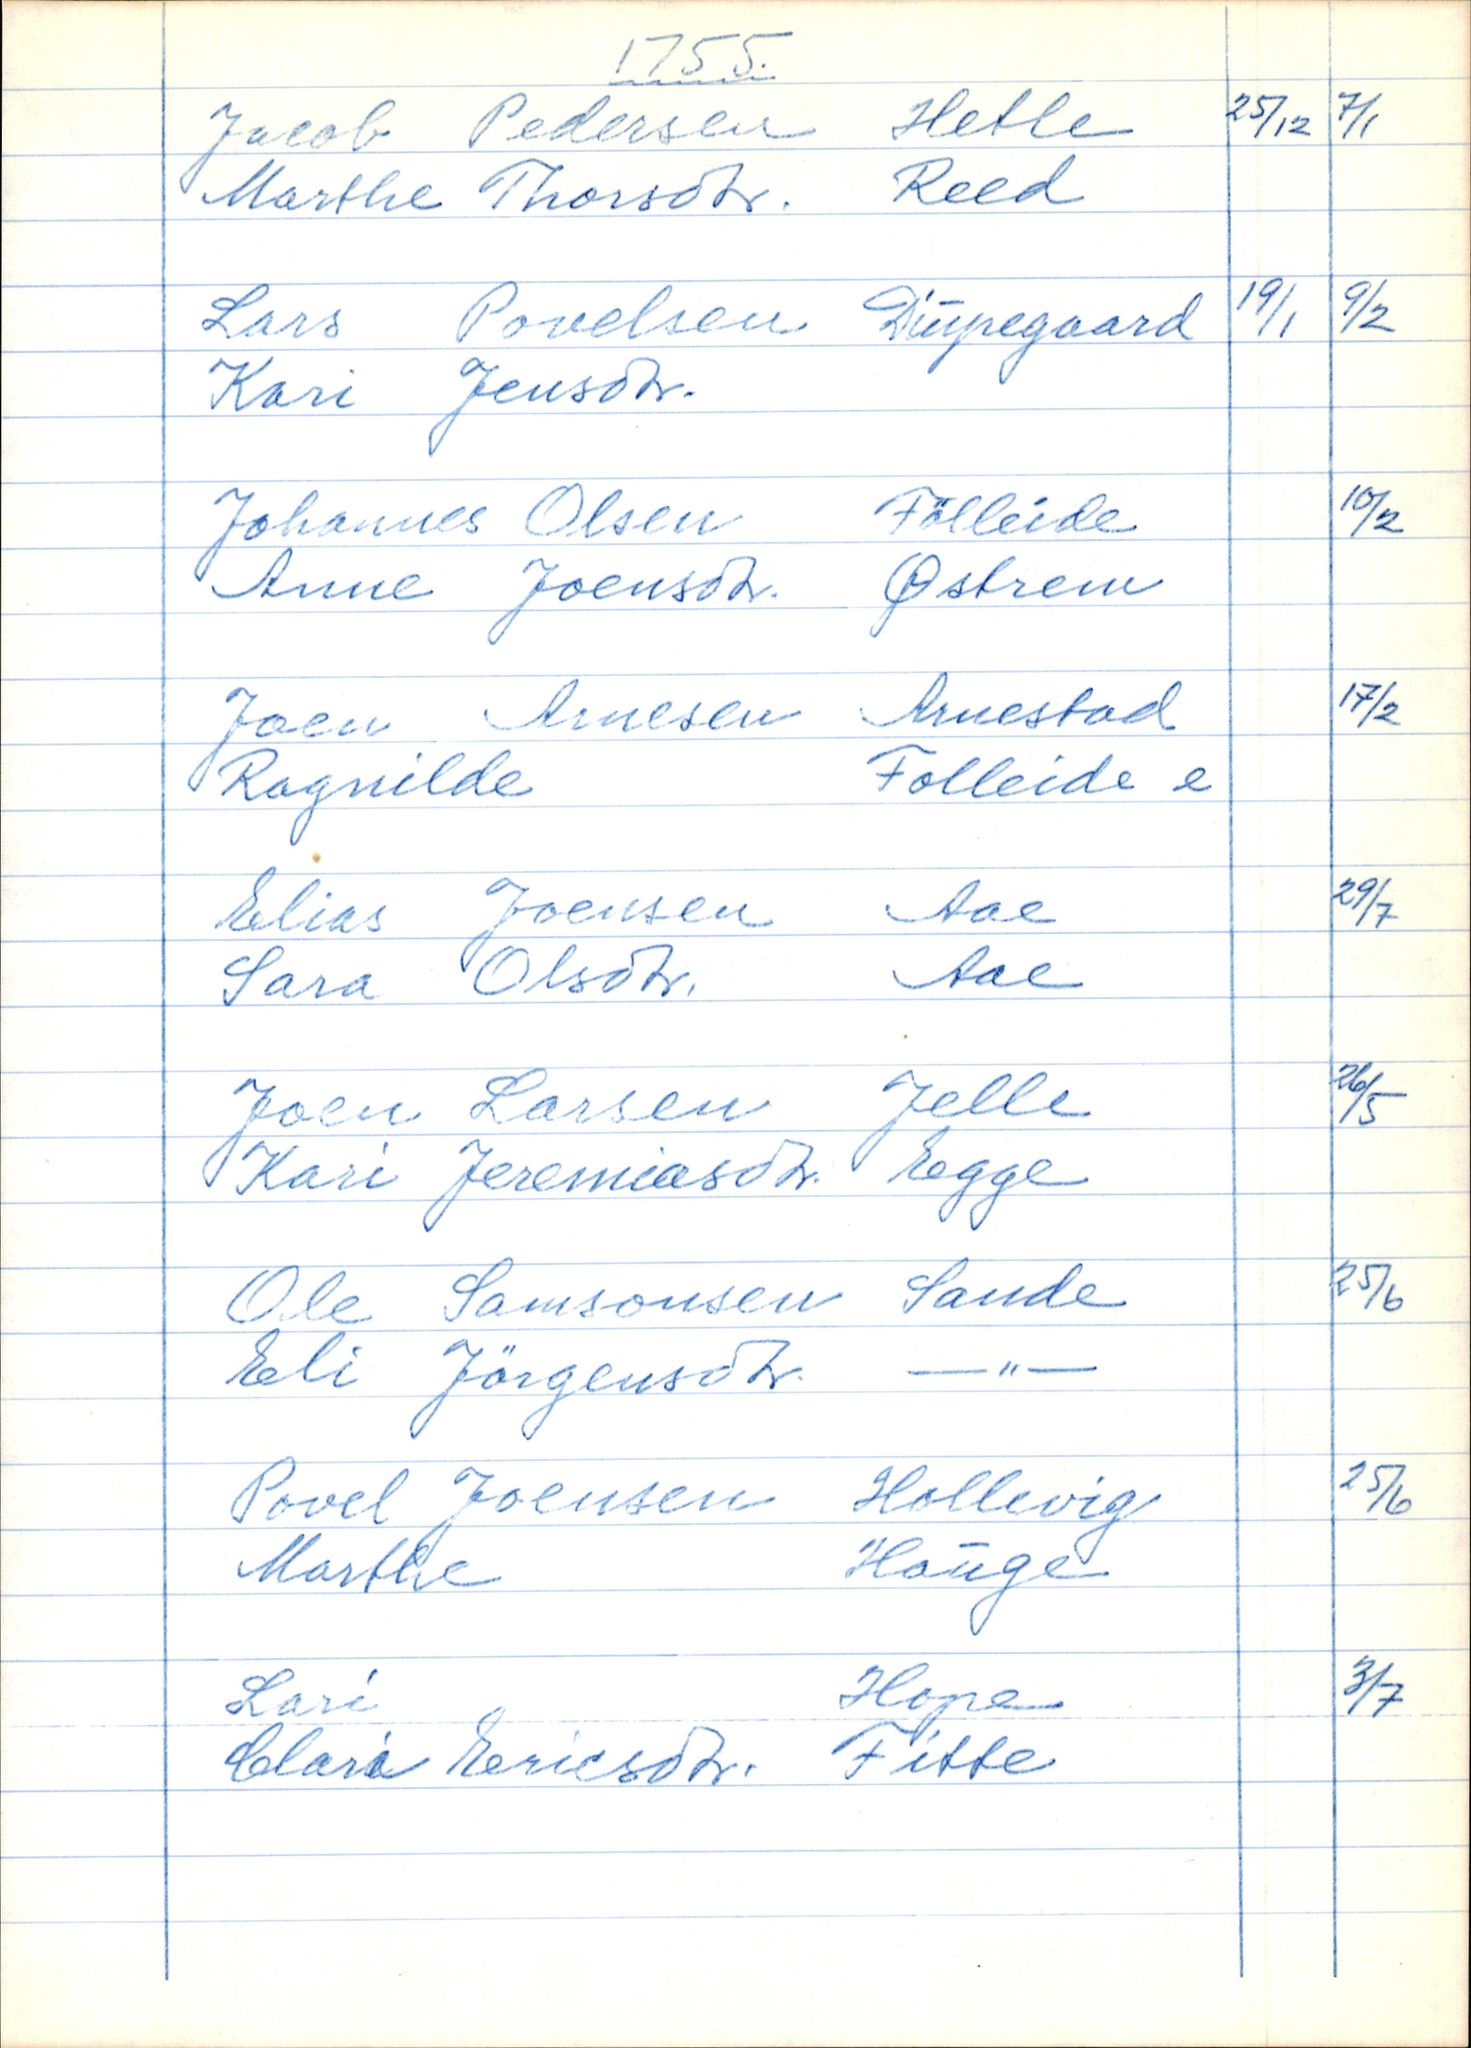 1755.
Jacob Pedersen Hetle 25/12 7/1
Marthe Thorsdtr. Reed
Lars Povelsen Diŭpegaard 19/1 9/2
Kari Jensdtr.
Johannes Olsen Fölleide 10/2
Anne Joensdtr. Østrem
Joen Arnesen Arnestad 17/2
Ragnilde Folleide e
Elias Joensen Aae 29/7
Sara Olsdtr. Aae
Joen Larsen Jelle 26/5
Kari Jeremiasdtr. Egge
Ole Samsonsen Sande 25/6
Eli Jörgensdtr. —"—
Povel Joensen Hollevig 25/6
Marthe Haŭge
Lari Hope 3/7
Clara Ericsdtr. Fitte